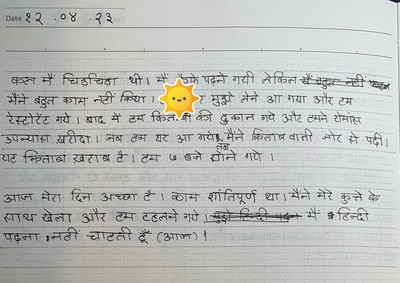 Date १२ . ०४ . २३
कल मैं चिड़चिड़ा थी। मैं पढ़ने गयी लेकिन
मैंने बहुत काम नहीं किया। मुझे लेने आ गया और हम
रेस्टोरेंट गये। बाद में हम की दुकान गये और हमने रोमांस
उपन्यास ख़रीदा। जब हम घर आ गये, तब मैंने किताब वाली जोर से पढ़ी।
यह किताब ख़राब है। हम ७ बजे सोने गये।
आज मेरा दिन अच्छा है। काम शांतिपूर्ण था। मैंने मेरे कुत्ते के
साथ खेला और हम टहलने गये। मैं हिन्दी
पढ़ना नहीं चाहती हूँ (आज)।